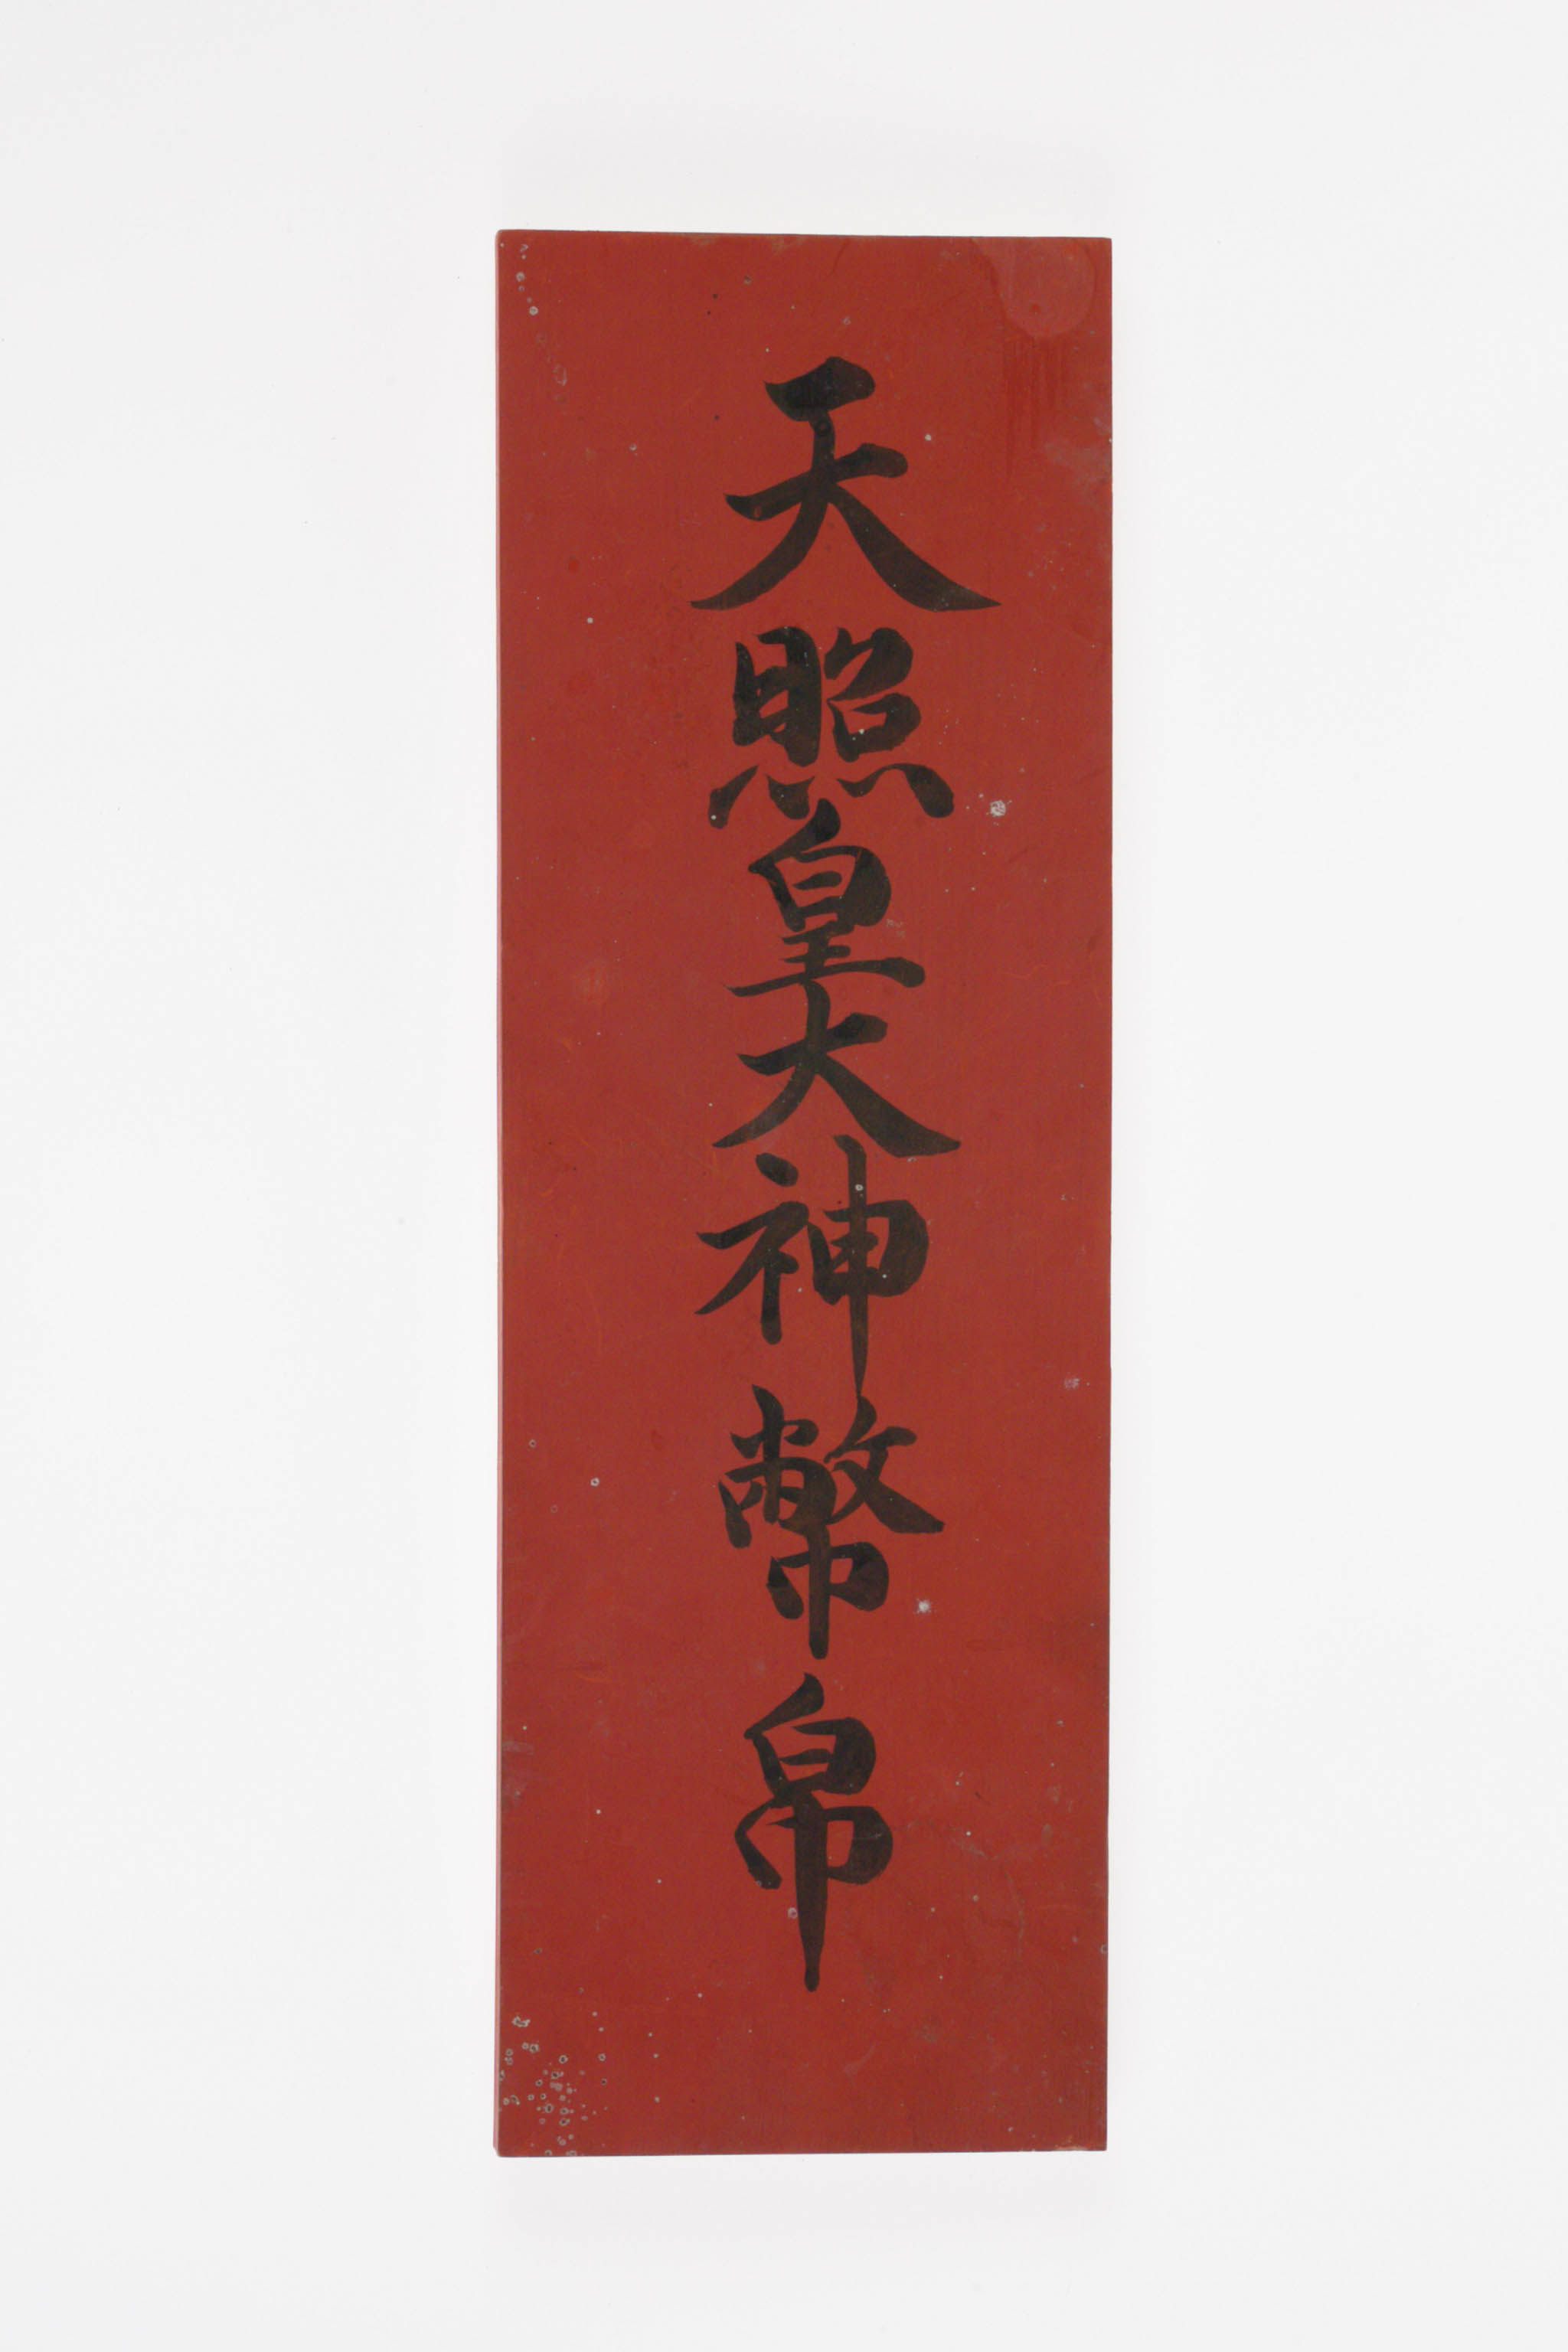 天照皇大神幣帛